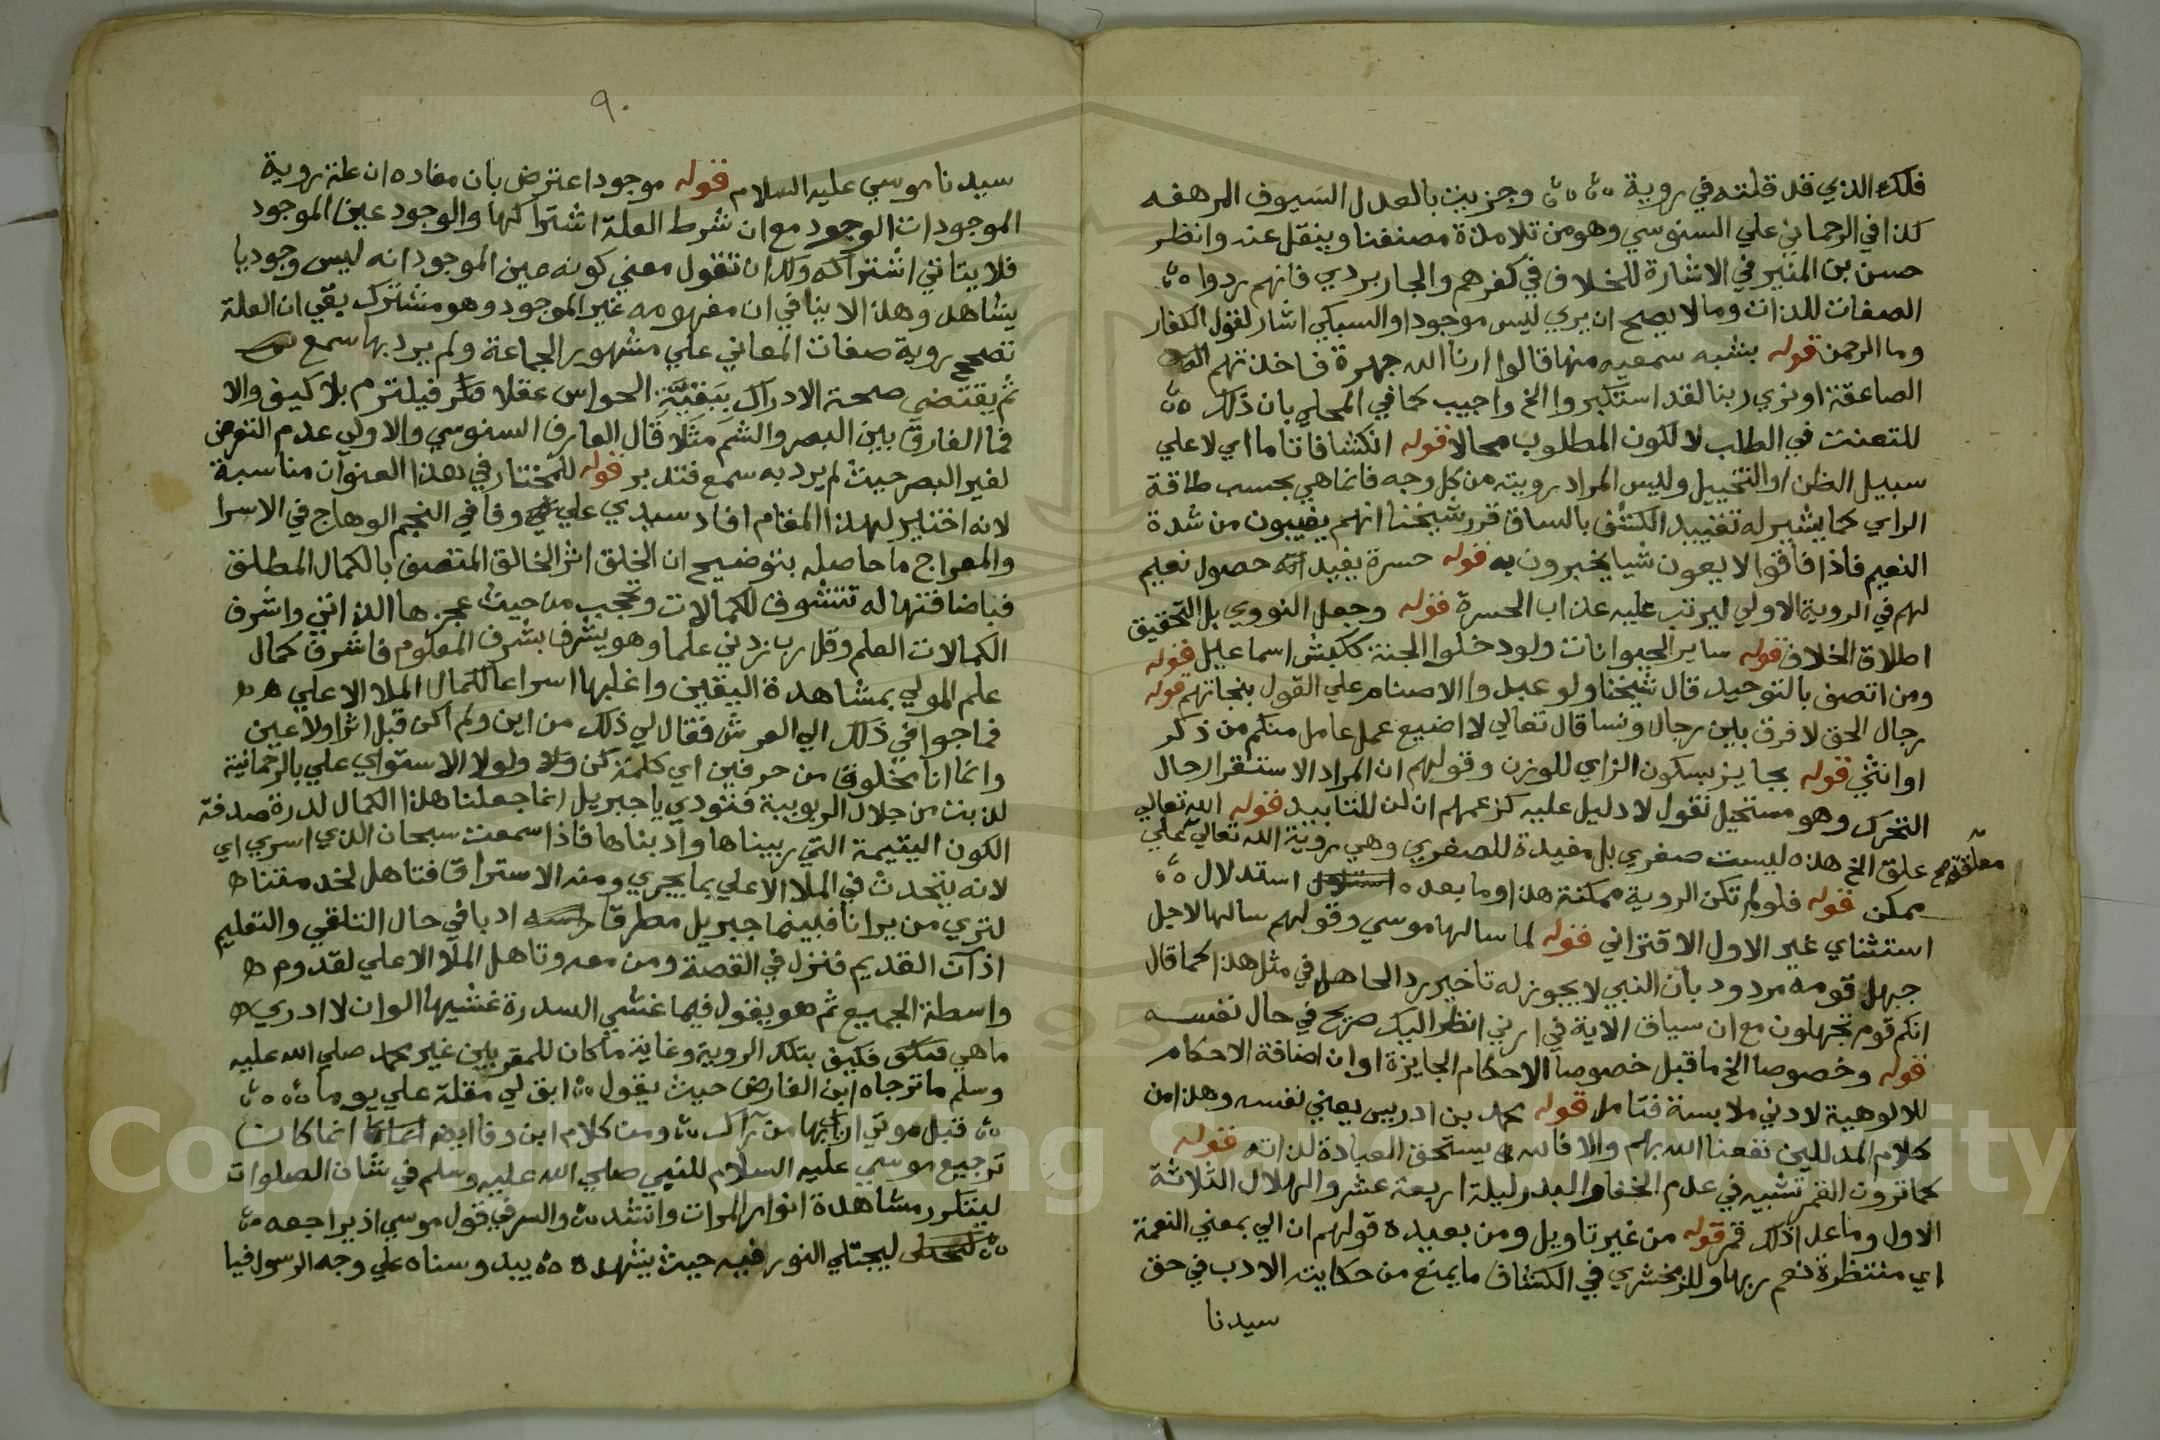 فلك الذي قد قلته في روية ه ه وجزيت بالعدل السيوف المرهفه
كذا في الرحماني علي السنوسي وهو من تلامذة مصنفنا وينقل عنه وانظر
حسن بن المنير في الاشارة للخلاف في كفرهم والجاربردي فانهم ردوا
الصفات للذات وما لا يصح ان يري ليس موجودا والسبكي اشار لقول الكفار
وما الرحمن قوله بشبه سمعيه منها قالوا ارنا الله جهرة فاخذتهم
الصاعقة او نري ربنا لقد استكبروا الخ واجيب كما في المحلي بان ذلك
للتعنت في الطلب لا لكون المطلوب محالا قوله انكشافا تاما اي لا علي
سبيل الظن او التخييل وليس المراد رويته من كل وجه فانما هي بحسب طاقة
الراي كما يشير له تقييد الكشف بالساق قرر شيخنا انهم يغيبون من شدة
النعيم فاذا فاقوا لا يعون شيا يخبرون به قوله حسرة يفيد انه حصول نعيم
لهم في الروية الاولي ليرتب عليه عذاب الحسرة قوله وجعل النووي بل التحقيق
اطلاق الخلاف قوله ساير الحيوانات ولو دخلوا الجنة ككبش اسماعيل قوله
ومن اتصف بالتوحيد قال شيخنا ولو عبدوا الاصنام علي القول بنجاتهم قوله
رجال الحق لا فرق بين رجال ونسا قال تعالي لا اضيع عمل عامل منكم من ذكر
او انثي قوله بجايز بسكون الزاي للوزن وقولهم ان المراد الاستقرار حال
التحرك وهو مستحيل نقول لا دليل عليه كزعمهم ان لن للتابيد قوله الله تعالي
علق الخ هذه ليست صغري بل مفيدة للصغري وهي روية الله تعالي علي
معلقة صح
ممكن قوله فلو لم تكن الروية ممكنة هذا وما بعده استدلال
استثناي غير الاول الاقتراني قوله لما سالها موسي وقولهم سالها لاجل
جهل قومه مردود بان النبي لا يجوز له تاخير رد الجاهل في مثل هذا كما قال
انكم قوم تجهلون مع ان سياق الاية في ارني انظر اليك صريح في حال نفسه
قوله وخصوصا الخ ما قبل خصوصا الاحكام الجايزة او ان اضافة الاحكام
للالوهية لادني ملابسة فتامل قوله محمد بن ادريس يعني نفسه وهذا من
كلام المدللين نفعنا الله بهم والا فالله يستحق العبادة لذاته قوله
كما ترون القمر تشبيه في عدم الخفا والبدر ليلة اربعة عشر والهلال الثلاثة
الاول وما عدا ذلك قمر قوله من غير تاويل ومن بعيده قولهم ان الي بمعني النعمة
اي منتظرة نعم ربها وللزمخشري في الكشاف ما يمنع من حكايته الادب في حق
سيدنا
٩٠
سيدنا موسي عليه السلام قوله موجود اعترض بان مفاده ان علة روية
الموجودات الوجود مع ان شرط العلة اشتراكها والوجود عين الموجود
فلا يتاتي اشتراكه ولك ان تقول معني كونه عين الموجود انه ليس وجوديا
يشاهد وهذا لا ينافي ان مفهومه غير الموجود وهو مشترك بقي ان العلة
تصحح روية صفات المعاني علي مشهور الجماعة ولم يرد بها سمع
ثم يقتضي صحة الادراك ببقية الحواس عقلا فيلتزم بلا كيف والا
فما الفارق بين البصر والشم مثلا قال العارف السنوسي والاولي عدم التعرض
لغير البصر حيث لم يرد به سمع فتدبر قوله للمختار في هذا العنوان مناسبة
لانه اختير لهذا المقام افاد سيدي علي وفا في النجم الوهاج في الاسرا
والمعراج ما حاصله بتوضيح ان الخلق اثر الخالق المتصف بالكمال المطلق
فباضافتها له تتشوف للكمالات وتحجب من حيث عجزها الذاتي واشرف
الكمالات العلم وقل رب زدني علما وهو يشرف بشرف المعلوم فاشرف كمال
علم المولي بمشاهدة اليقين واغلبها اسراعا لكمال الملا الاعلي
فماجوا في ذلك الي العرش فقال لي ذلك من اين ولم اكن قبل اثرا ولا عين
وانما انا مخلوق من حرفين اي كلمة كن ولولا الاستواي علي بالرحمانية
لذبت من جلال الربوبية فنودي يا جبريل انما جعلنا هذا الكمال لدرة صدفة
الكون اليتيمة التي ربيناها وادبناها فاذا سمعت سبحان الذي اسري اي
لانه يتحدث في الملا الاعلي بما يجري ومنه الاستراق فتاهل لخدمتنا
لتري من يرانا فبينما جبريل مطرقا ادبا في حال التلقي والتعليم
اذ آن القديم فنزل في القصة ومن معه وتاهل الملا الاعلي لقدوم
واسطة الجميع ثم هو يقول فيما غشي السدرة غشيها الوان لا ادري
ما هي فكيف بتلك الروية وغاية ما كان للمقربين غير محمد صلي الله عليه
وسلم ما ترجاه ابن الفارض حيث يقول ه ابق لي مقلة علي يوما
قبل موتي اري بها من رآك ه ومن كلام ابن وفا ايضا انما كان
ترجيع موسي عليه السلام للنبي صلي الله عليه وسلم في شان الصلوات
ليتكرر مشاهدة انوار المرات وانشد ه والسر في قول موسي اذ يراجعه
ليجتلي النور فيه حيث يشهده ه يبدو سناه علي وجه الرسول فيا
Copyright © King Saud University